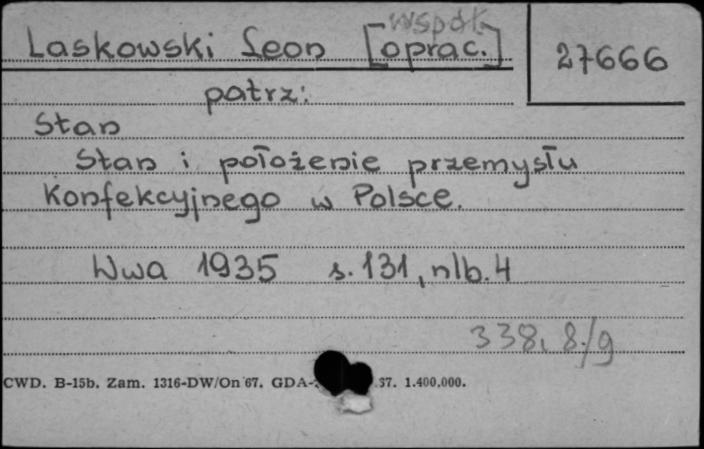 współ.
Laskowski Leon [oprac.] 27666
patrz:
Stan
Stan i położenie przemysłu
Konfekcyjnego w Polsce.
Wwa 1935 s. 131, nlb. 4
338, 8./9
CWD. B-15b. Zam. 1316-DW/On 67. GDA- 37. 1.400.000.